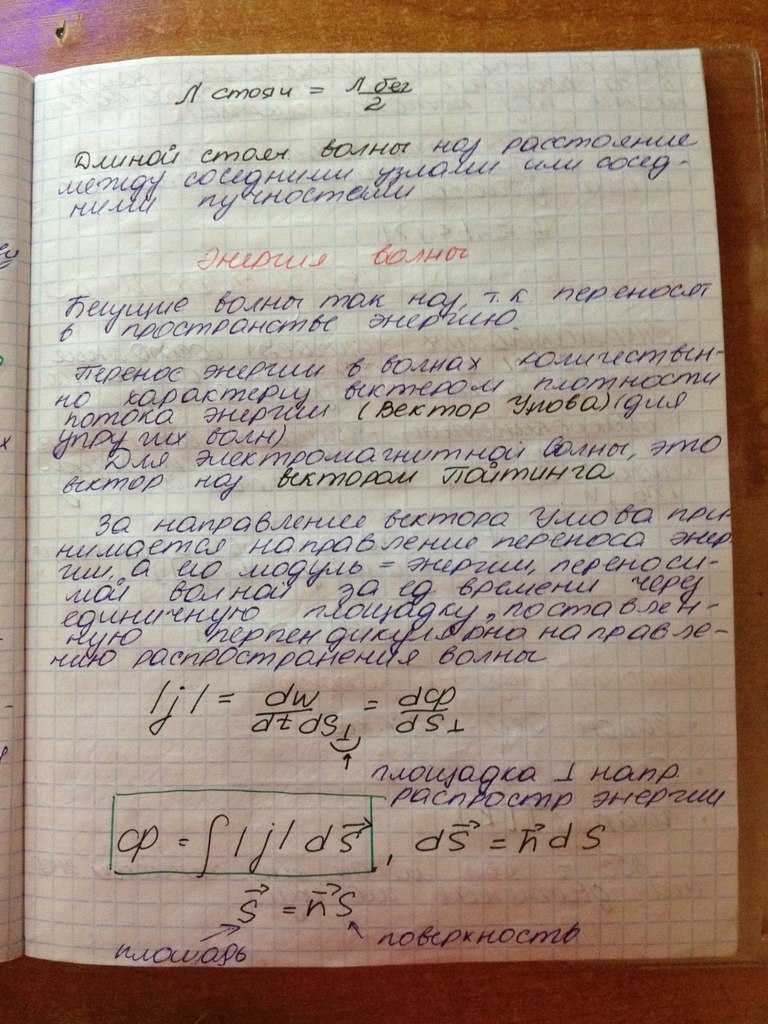 λ стояч = λ бег / 2
Длиной стояч волны наз расстояние
между соседними узлами или сосед-
ними пучностями
Энергия волны
Бегущие волны так наз, т.к переносят
в пространстве энергию.
Перенос энергии в волнах количествен-
но характериз вектером плотности
потока энергии (Вектор Умова) (для
упругих волн)
Для электромагнитной волны, это
вектор наз вектором Пойтинга
За направление вектора Умова при-
нимается направление переноса энер
гии, а его модуль = энергии, переноси-
мой волной за ед времени через
единичную площадку, поставлен-
ную перпендикулярно направле-
нию распространения волны
|j| = dW / dt dS⊥ = dФ / dS⊥
площадка ⊥ напр
распростр энергии
Ф = ∫ |j| dS⃗ , dS⃗ = n⃗ dS
S⃗ = n⃗ S
площадь
поверхность